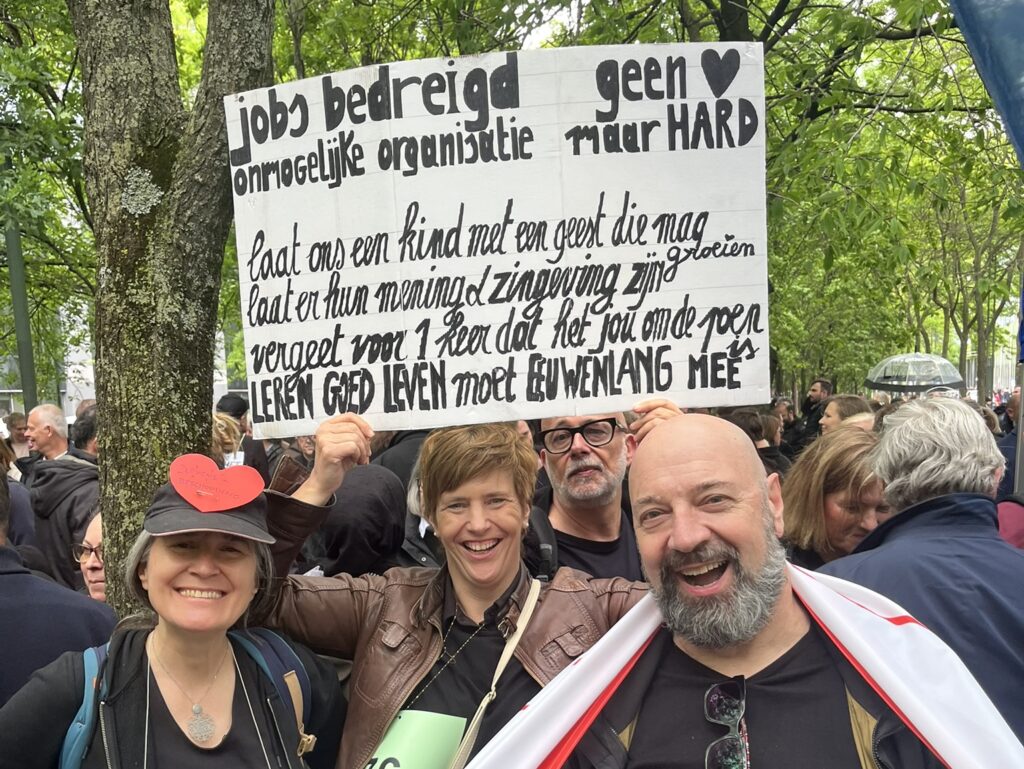 jobs bedreigd
onmogelijke organisatie
geen ♥
maar HARD
laat ons een kind met een geest die mag
groeien
laat er hun mening & zingeving zijn
vergeet voor 1 keer dat het jou om de poen
is
LEREN GOED LEVEN moet EEUWENLANG MEE